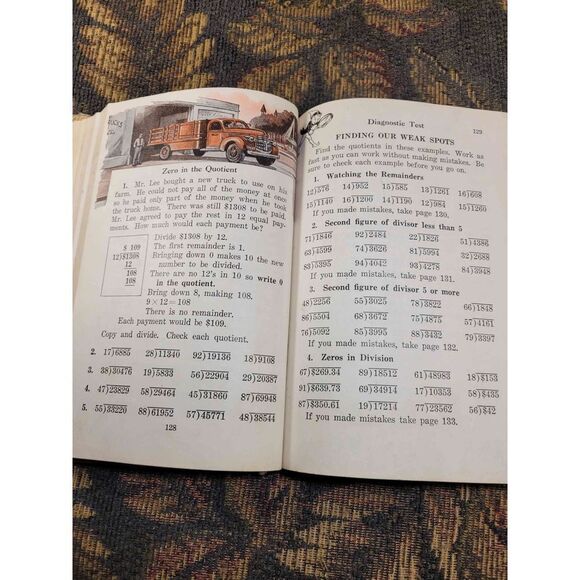 TRUCKS
Zero in the Quotient
1. Mr. Lee bought a new truck to use on his
farm. He could not pay all of the money at once
so he paid only part of the money when he took
the truck home. There was still $1308 to be paid.
Mr. Lee agreed to pay the rest in 12 equal pay-
ments. How much would each payment be?
$ 109
12)$1308
12
108
108
Divide $1308 by 12.
The first remainder is 1.
Bringing down 0 makes 10 the new
number to be divided.
There are no 12's in 10 so write 0
in the quotient.
Bring down 8, making 108.
9 × 12 = 108
There is no remainder.
Each payment would be $109.
Copy and divide. Check each quotient.
2. 17)6885 28)11340 92)19136 18)9108
3. 38)30476 19)5833 56)22904 29)20387
4. 47)23829 58)29464 45)31860 87)69948
5. 55)33220 88)61952 57)45771 48)38544
128
Diagnostic Test 129
FINDING OUR WEAK SPOTS
Find the quotients in these examples. Work as
fast as you can work without making mistakes. Be
sure to check each example before you go on.
1. Watching the Remainders
12)576 14)952 15)585 13)1261 16)608
15)1140 16)1200 14)1190 12)984 15)1260
If you made mistakes, take page 130.
2. Second figure of divisor less than 5
71)1846 92)2484 22)1826 51)4386
63)4599 74)3626 82)5990 32)2688
83)5395 94)4042 93)4278 84)3948
If you made mistakes, take page 131.
3. Second figure of divisor 5 or more
48)2256 55)3025 78)3822 66)1848
86)5504 68)3672 75)4875 57)4161
76)5092 85)3995 88)3432 79)3397
If you made mistakes, take page 132.
4. Zeros in Division
67)$269.34 89)18512 61)48983 18)$153
91)$639.73 69)34914 17)10353 58)$435
87)$350.61 19)17214 77)23562 56)$42
If you made mistakes take page 133.